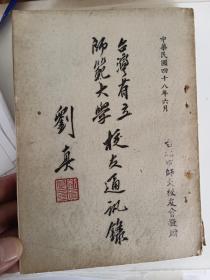 中華民國四十八年六月
台灣省立
師範大学
校友通訊錄
劉真
師大校友會